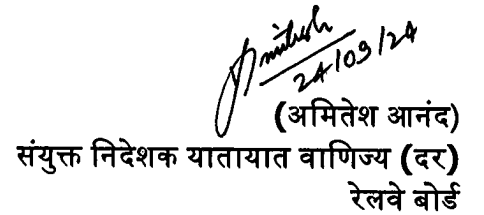 Amitesh
24/09/24
(अमितेश आनंद)
संयुक्त निदेशक यातायात वाणिज्य (दर)
रेलवे बोर्ड